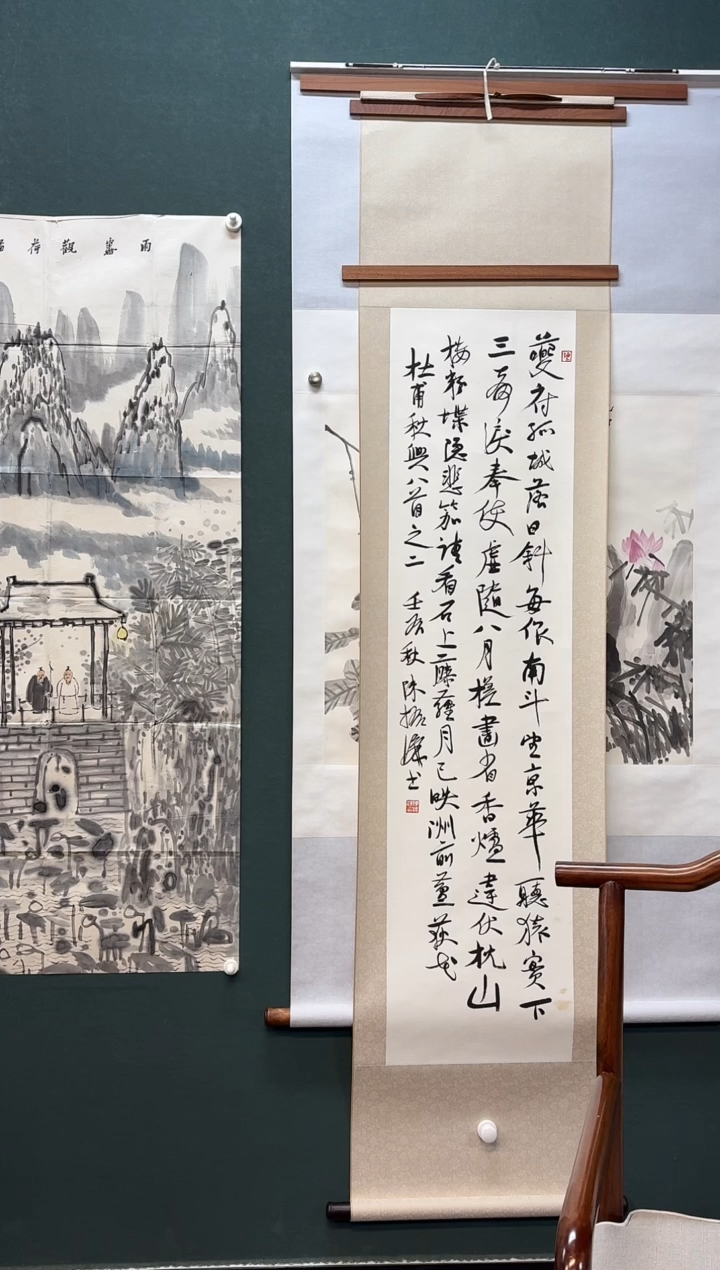 夔府孤城落日斜每依南斗望京華聽猿實下
三聲淚奉使虛隨八月槎畫省香爐違伏枕山
樓粉堞隱悲笳請看石上藤蘿月已映洲前蘆荻花
杜甫秋興八首之二 壬辰秋 陳振濂書
雨觀荷